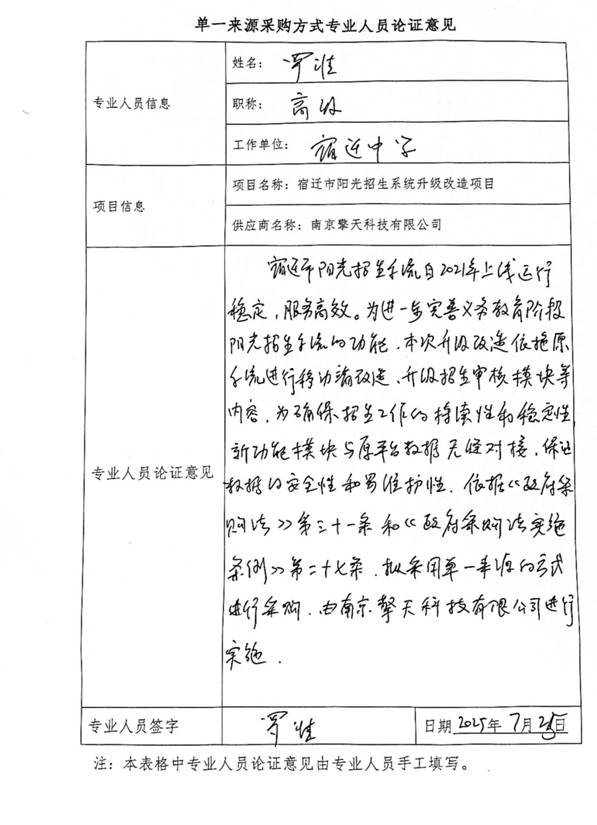 单一来源采购方式专业人员论证意见
专业人员信息
姓名：罗淮
职称：高级
工作单位：宿迁中学
项目信息
项目名称：宿迁市阳光招生系统升级改造项目
供应商名称：南京擎天科技有限公司
专业人员论证意见
宿迁市阳光招生系统自2021年上线运行
稳定，服务高效。为进一步完善义务教育阶段
阳光招生系统的功能，本次升级改造依托原
系统进行移动端改造、升级招生审核模块等
内容，为确保招生工作的持续性和稳定性，
新功能模块与原平台数据无缝对接，保证
数据的安全性和易维护性。依据《政府采
购法》第三十一条和《政府采购法实施
条例》第二十七条，拟采用单一来源的方式
进行采购，由南京擎天科技有限公司进行
实施．
专业人员签字
罗淮
日期 2025年7月25日
注：本表格中专业人员论证意见由专业人员手工填写。